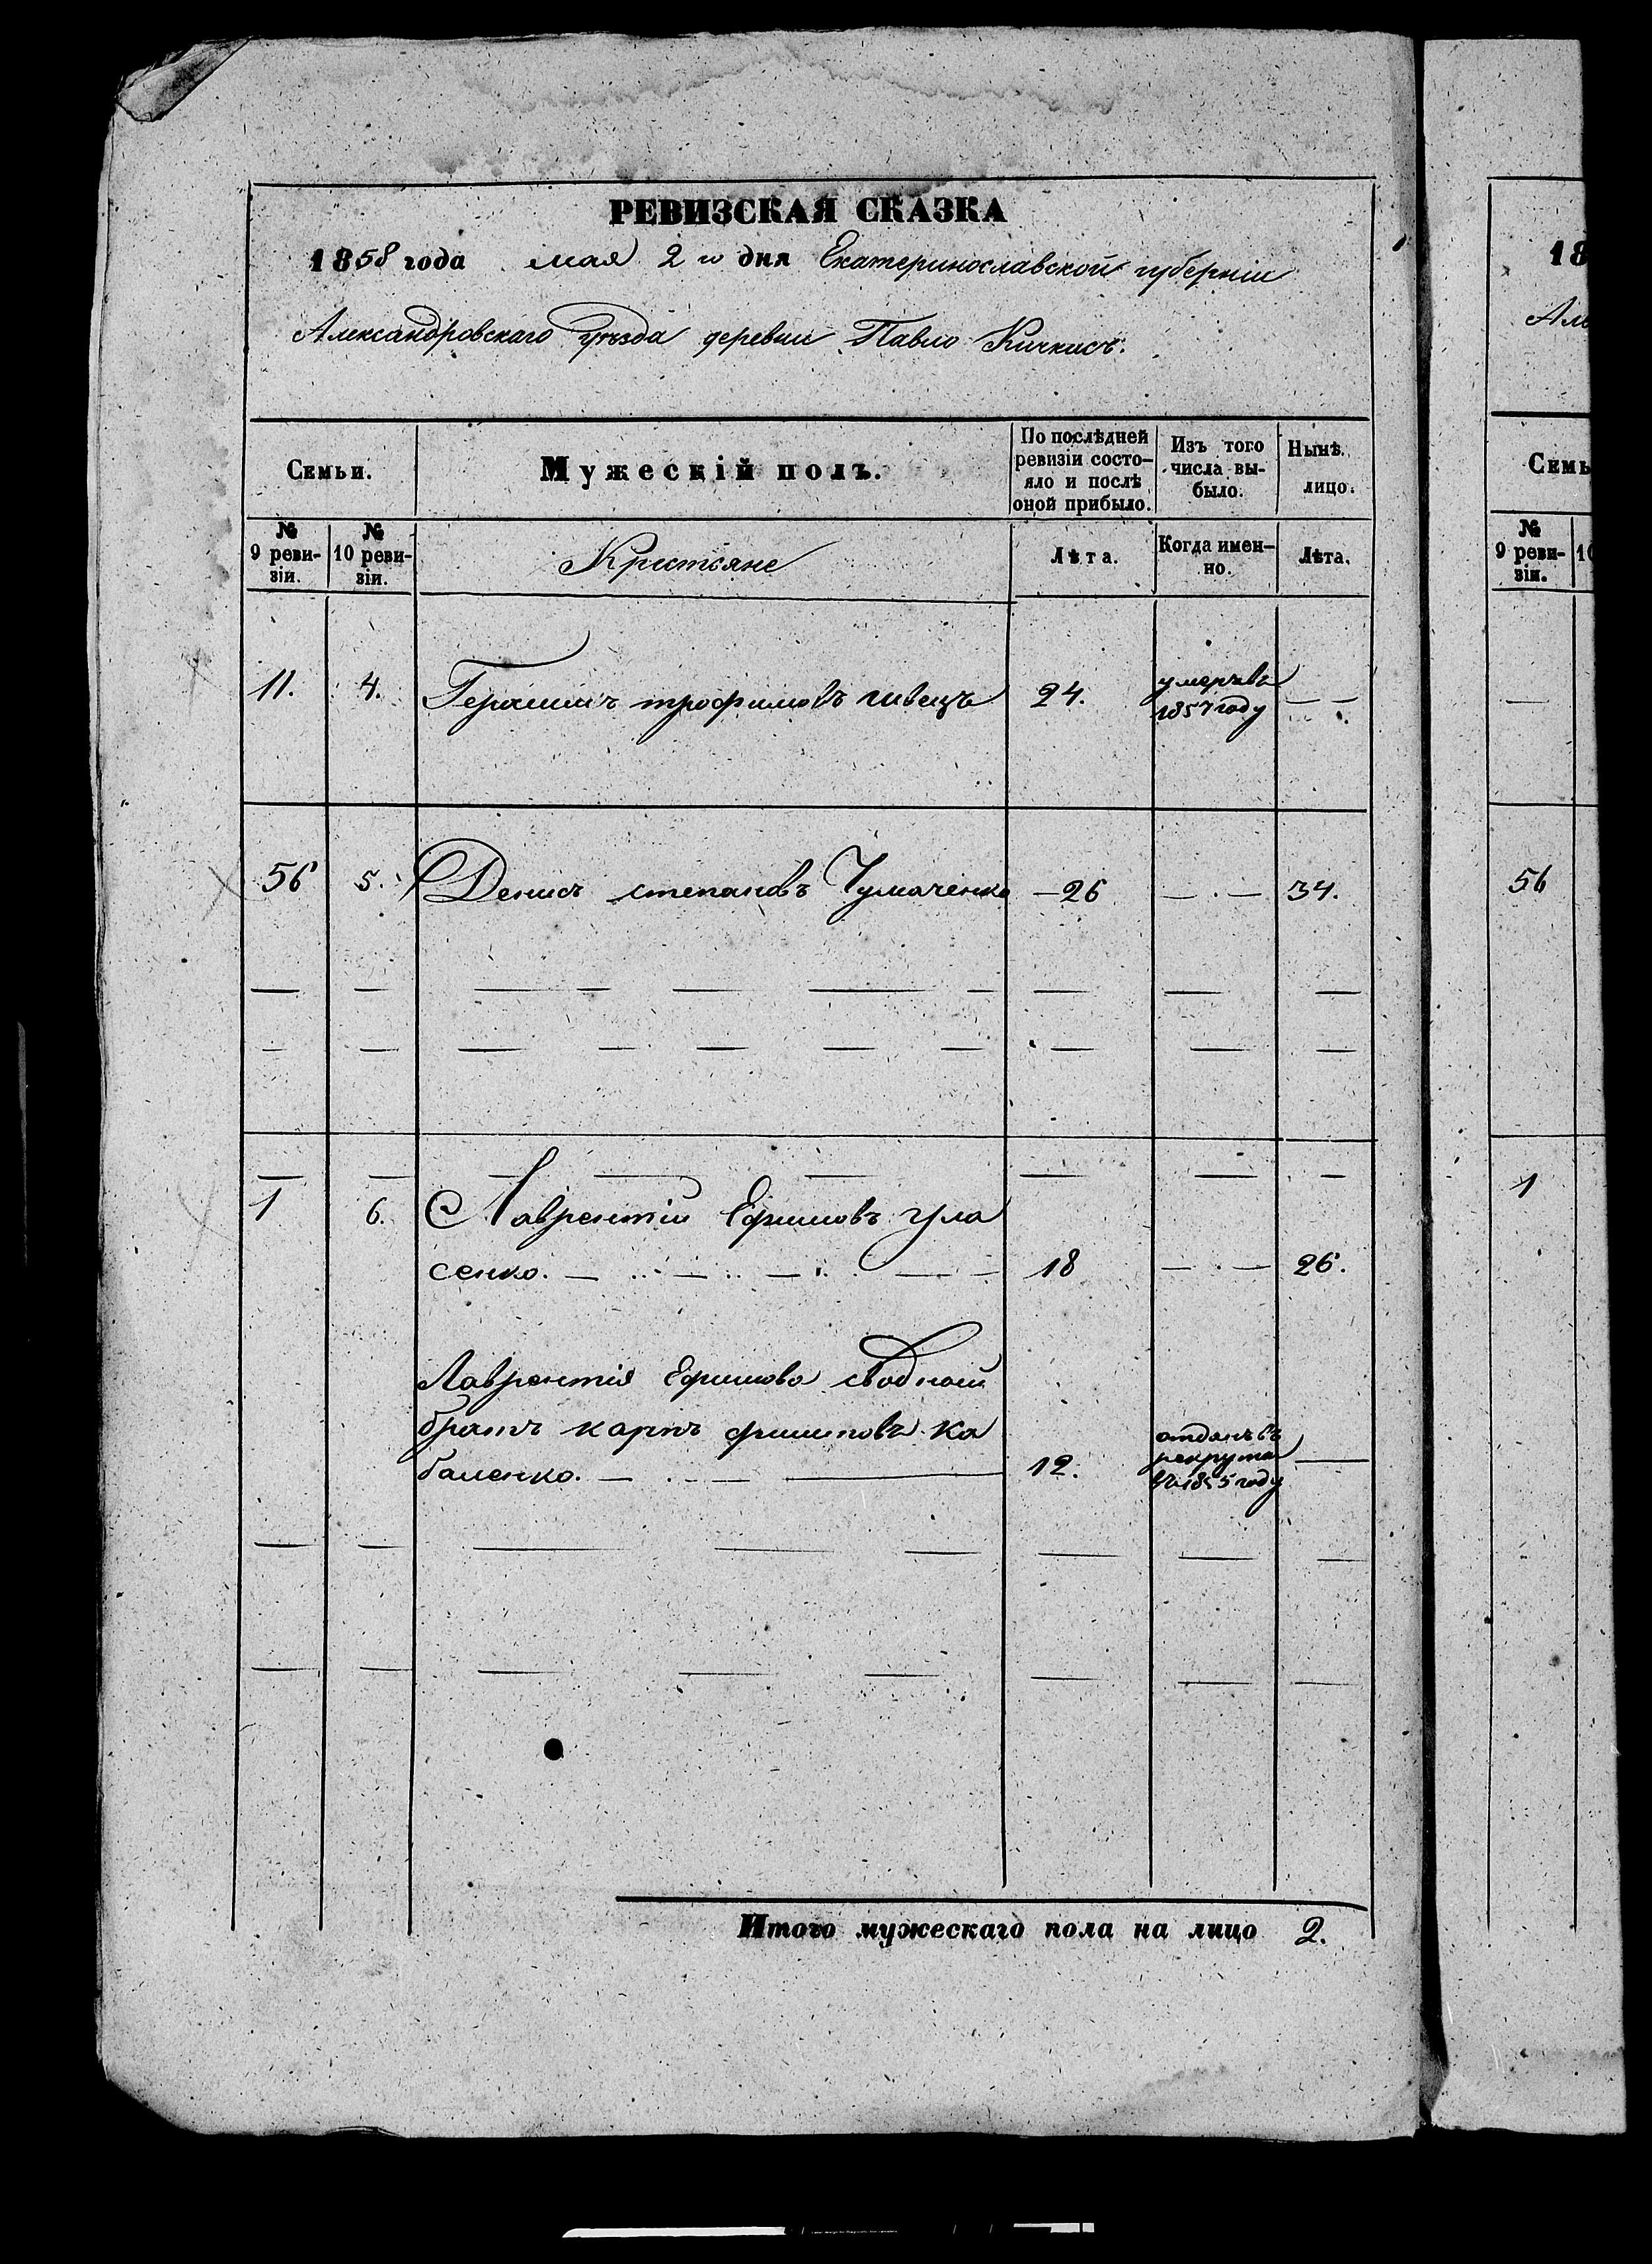 РЕВИЗСКАЯ СКАЗКА
1858 года мая 2 го дня Екатеринославской губерніи
Александровскаго уѣзда деревни Павло Кичкисъ.
Семьи.
Мужескій полъ.
По послѣдней ревизіи состо-
яло и послѣ оной прибыло.
Изъ того числа вы-
было.
Нынѣ. лицо.
№ 9 реви-
зіи.
№ 10 реви-
зіи.
Крестьяне
Лѣта.
Когда имен-
но.
Лѣта.
11. 4. Герасимъ трофимовъ швецъ 24. умеръ въ
1857 году
56 5. Денисъ степановъ Чумаченко 26 34.
1 6. Лаврентій Ефимовъ ула
сенко. 18 26.
Лаврентія Ефимова сводной
братъ карпъ филиповъ ка
баленко. 12. отданъ въ
рекрута
въ 1855 году
Итого мужескаго пола на лицо 2.
18
Але
Семь
№
9 реви-
зіи.
10
56
1